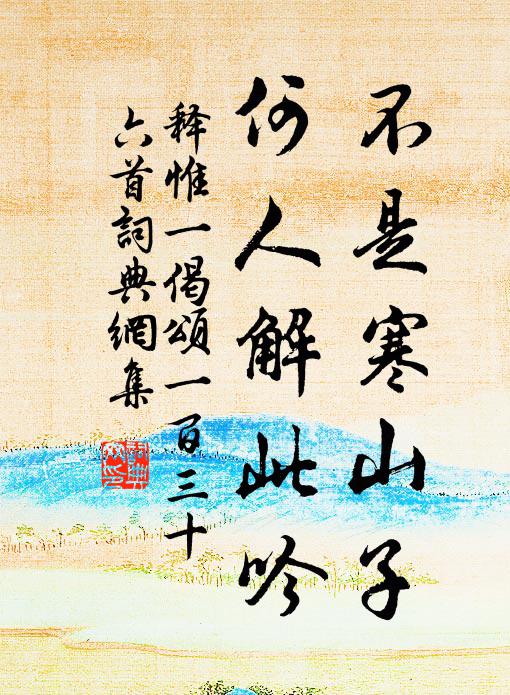 不是寒山子
何人解此吟
释惟一偈頌一百三十
六首詞典網集